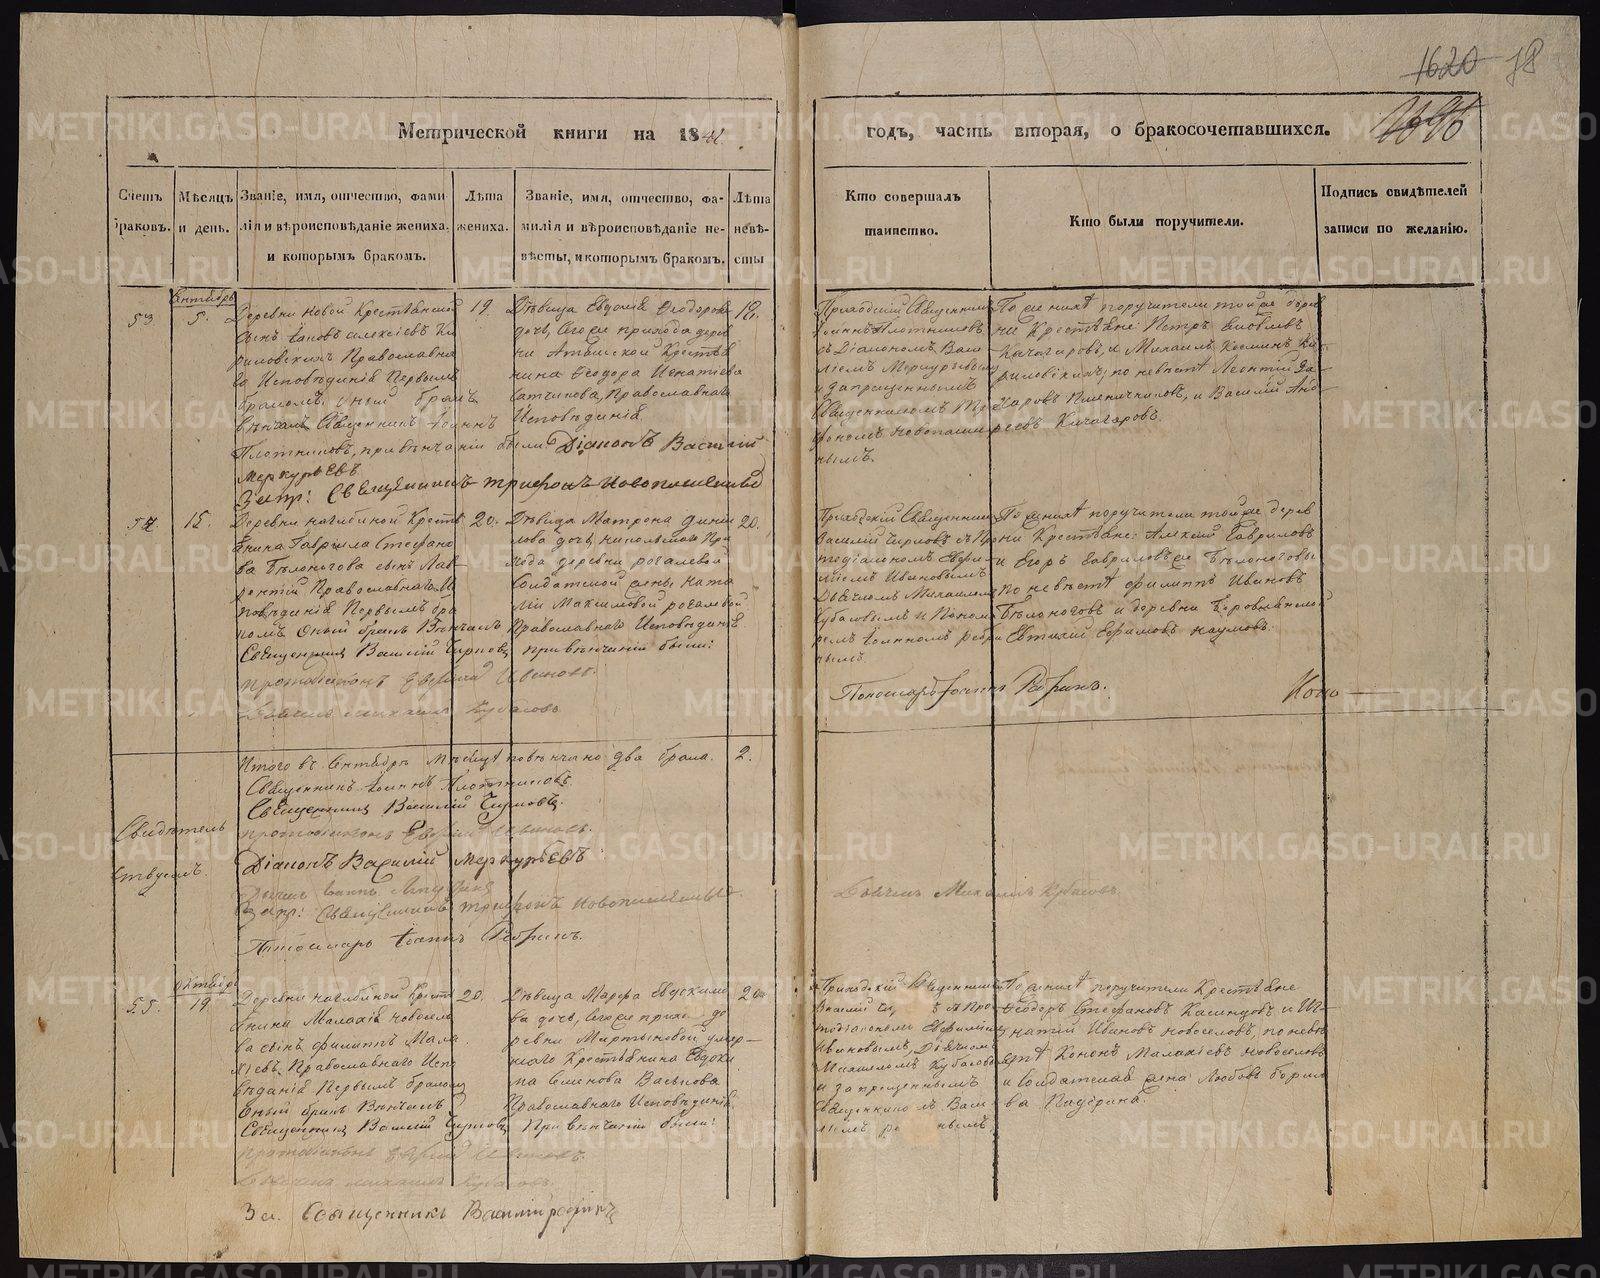 1620 78
1696
Метрической книги на 1841
годъ, часть вторая, о бракосочетавшихся.
Счетъ браковъ.
Мѣсяцъ и день.
Званіе, имя, отчество, фами-
лія и вѣроисповѣданіе жениха,
и которымъ бракомъ.
Лѣта
жениха.
Званіе, имя, отчество, фа-
милія и вѣроисповѣданіе не-
вѣсты, и которымъ бракомъ.
Лѣта
невѣ-
сты
Кто совершалъ
таинство.
Кто были поручители.
Подпись свидѣтелей
записи по желанію.
53
Сентябрь
5.
Деревни Новой Крестьянской
сынъ Іаковъ Алексіевъ Ки
риловскихъ Православна
го Исповѣданія Первымъ
бракомъ. Оный бракъ
Вѣнчалъ Священникъ Іоаннъ
Плотниковъ, при вѣнчаніи были Діаконъ Василій
Меркурьевъ
Запр: Священникъ Трифонъ Новопашенный
19.
Дѣвица Евдокія Ѳеодорова
дочь, сего же прихода дерев
ни Крестья
нина Ѳеодора Игнатіева
Православнаго
Исповѣданія
18.
Приходскій Священникъ
Іоаннъ Плотниковъ
съ Діакономъ Васи
ліемъ Меркурьевымъ
и запрещеннымъ
Священникомъ Три
фономъ Новопаше
нымъ.
По женихѣ поручители той же дерев
ни Крестьяне Петръ Яковлевъ
Качагаровъ, и Михаилъ Косминъ Ки
риловскихъ; по невѣстѣ Леонтій За
харовъ Пшеничниковъ, и Василій Анд
реевъ Качагаровъ.
54
15.
Деревни Нагибиной Кресть
янина Гавріила Стефано
ва Бѣлоногова сынъ Лав
рентій Православнаго Ис
повѣданія Первымъ бра
комъ Оный бракъ Вѣнчалъ
Священникъ Василій Чирковъ
протодіаконъ Евфимій Ивановъ.
Дьячекъ Михаилъ Кубасовъ
20.
Дѣвица Матрона
лова дочь, Никольскаго При
хода деревни Рогалевой
Солдатской жены Ната
ліи Максимовой Рогалевой
Православнаго Исповѣданія
При вѣнчаніи были:
20.
Приходскій Священникъ
Василій Чирковъ съ Про
тодіакономъ Евфи
міемъ Ивановымъ
Дьячкомъ Михаиломъ
Кубасовымъ и Понома
ремъ Іоанномъ Ребри
нымъ
По женихѣ поручители той же дерев
ни Крестьяне: Алексій Гавриловъ
и Егоръ Гавриловъ Бѣлоноговы
по невѣстѣ Филиппъ Ивановъ
Бѣлоноговъ и деревни Боровлянской
Евтихій Ефимовъ Наумовъ.
Пономарь Іоаннъ Ребринъ.
Итого въ Сентябрѣ Мѣсяцѣ повѣнчано два брака. 2.
Священникъ Іоаннъ Плотниковъ
Священникъ Василій Чирковъ.
протодіаконъ Евфимій Ивановъ.
Свидѣтель
ствуемъ.
Діаконъ Василій Меркурьевъ
Запр: Священникъ Трифонъ Новопашенный
Пономарь Іоаннъ Ребринъ.
Дьячекъ Михаилъ Кубасовъ
55.
Октябрь
19
Деревни Нагибиной Кресть
янина Малахія Новосело
ва сынъ Филиппъ Мала
хіевъ, Православнаго Испо
вѣданія Первымъ бракомъ
Оный бракъ Вѣнчалъ
Священникъ Василій Чирковъ
протодіаконъ Евфимій Ивановъ.
Дьячекъ Михаилъ Кубасовъ.
За. Священникъ Василій Ребринъ
20.
Дѣвица Марѳа Евдокимо
ва дочь, сего же прихо до
ревни Мартыновой умер-
шаго Крестьянина Евдоки
ма Семенова Васькова
Православнаго Исповѣданія
При вѣнчаніи были:
20
Приходскій Священникъ
Василій Чи ъ съ Про
тодіакономъ Евфиміемъ
Ивановымъ, Дьячкомъ
Михаиломъ Кубасовымъ
и запрещеннымъ
Священнико мъ Васи
ліемъ Ре нымъ.
По женихѣ поручители Крестьяне
Ѳеодоръ Стефановъ Кашинцовъ и Иг-
натій Ивановъ Новоселовъ, по невѣ
стѣ Кононъ Малахіевъ Новоселовъ
и Солдатская жена Любовь Бори
ва Падерина.